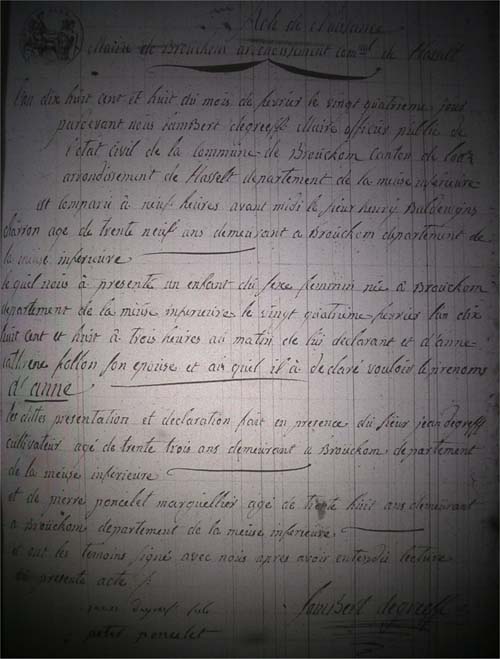 Acte de Naissance
Mairie de Brouckom arrondissement com.al de Hasselt
L'an dix huit cent et huit du mois de fevrier le vingt quatrieme jour
pardevant nous Lambert degreeff Maire officier public de
l'état civil de la commune de Brouckom canton de Looz
arrondissement de Hasselt departement de la meuse inferieure
est comparu à neuf heures avant midi le sieur henry Baldewyns
charron age de trente neuf ans demeurant a Brouckom departement de
la meuse inferieure
lequel nous à presenté un enfant du sexe feminin née à Brouckom
departement de la meuse inferieure le vingt quatrime fevrier l'an dix
huit cent et huit à trois heures au matin de lui declarant et d'anne
cathrene follon son epouse et auquel il à declaré vouloir le prenoms
d'anne
les dittes presentation et declaration fait en presence du sieur jean degreeff
cultivateur agé de trente trois ans demeurant a Brouckom departement
de la meuse inferieure
et de pierre poncelet marguellier agé de trente huit ans demeurant
a Brouckom departement de la meuse inferieure
et ont les temoins signé avec nous apres avoir entendu lecture
du presente acte /.
Lambert degreeff
peter poncelet